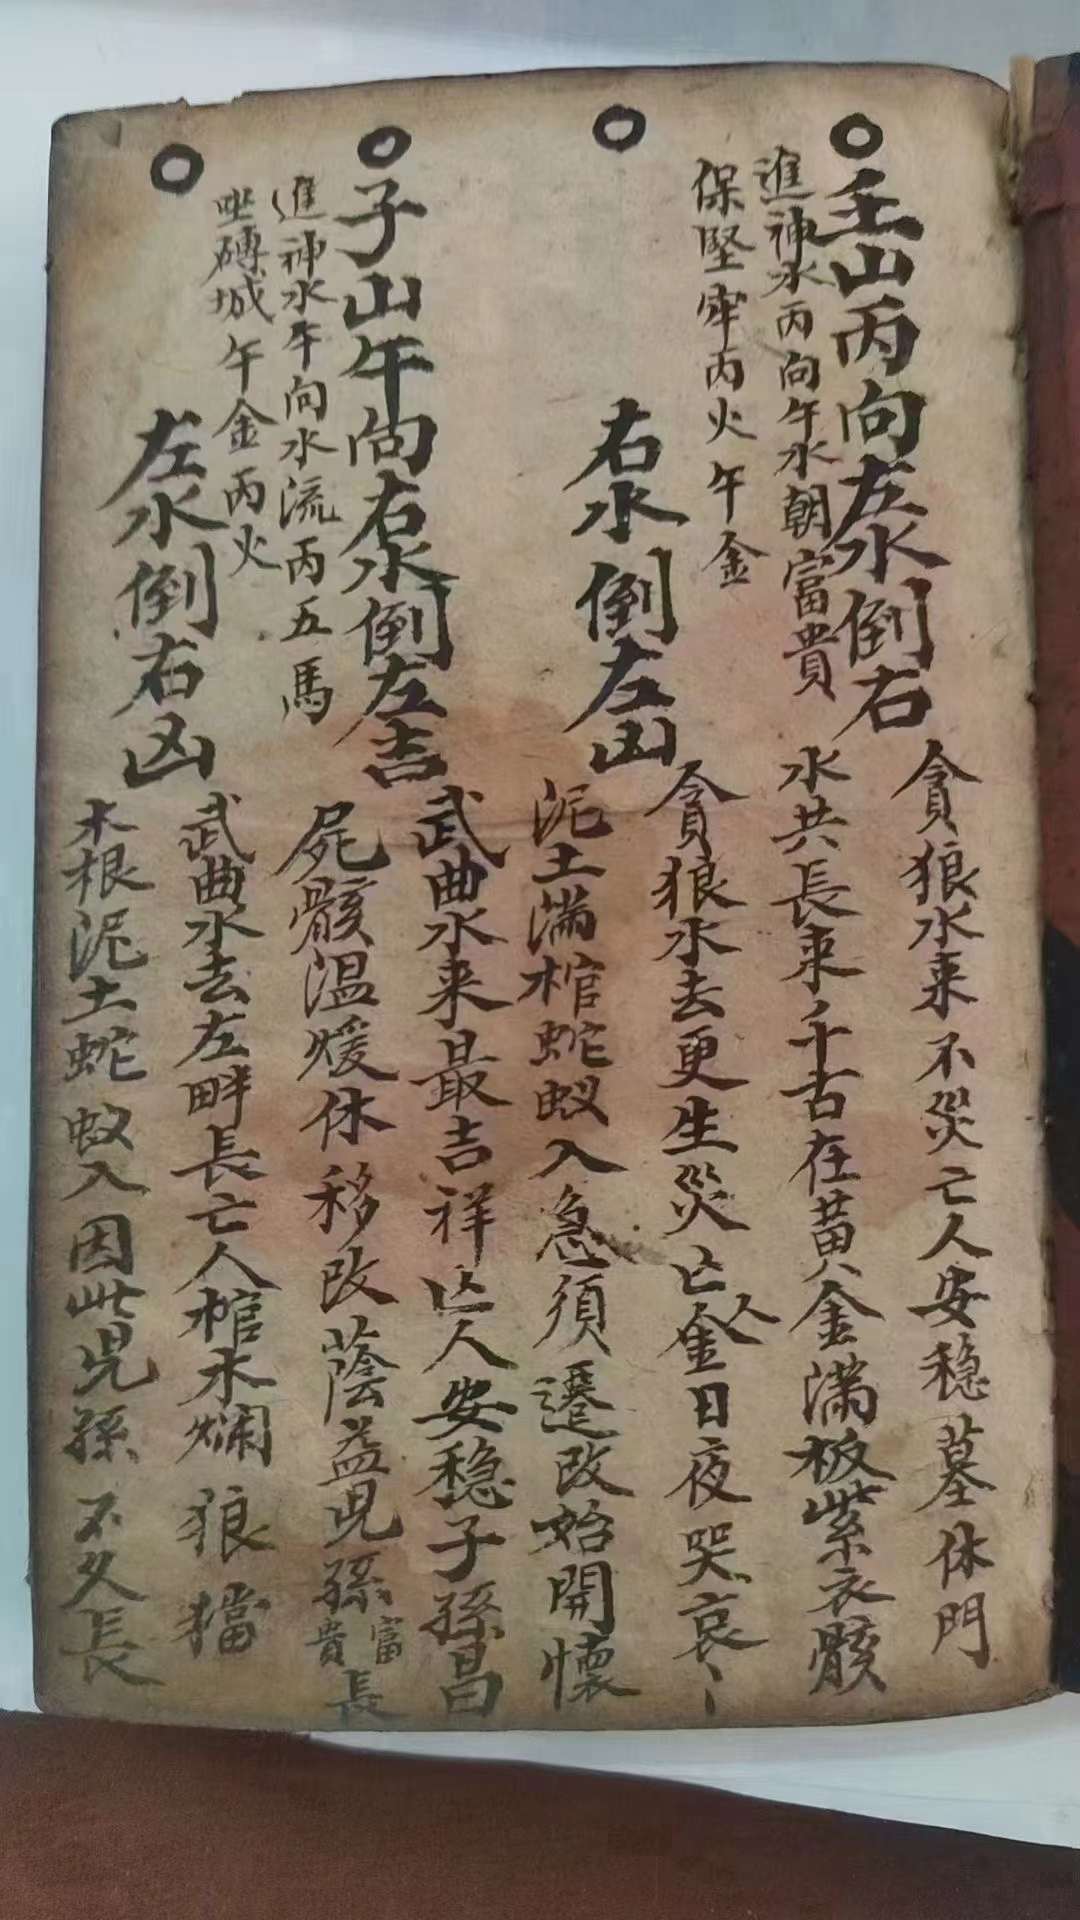 壬山丙向左水倒右
進神水丙向午水朝富貴
保堅牢丙火午金
貪狼水来不災亡人安穏墓休門
水共長来千古在黃金滿板紫衣骸
右水倒左凶
貪狼水去更生災亡人金日夜哭哀哀
泥土滿棺蛇蚁入急須遷改始開懷
子山午向右水倒左吉
進神水午向水流丙五馬
坐磚城午金丙火
武曲水来最吉祥亡人安穏子孫昌
屍骸温煖休移改蔭益児孫富貴長
左水倒右凶
武曲水去左畔長亡人棺木爛狼擋
木根泥土蛇蚁入因此児孫不久長